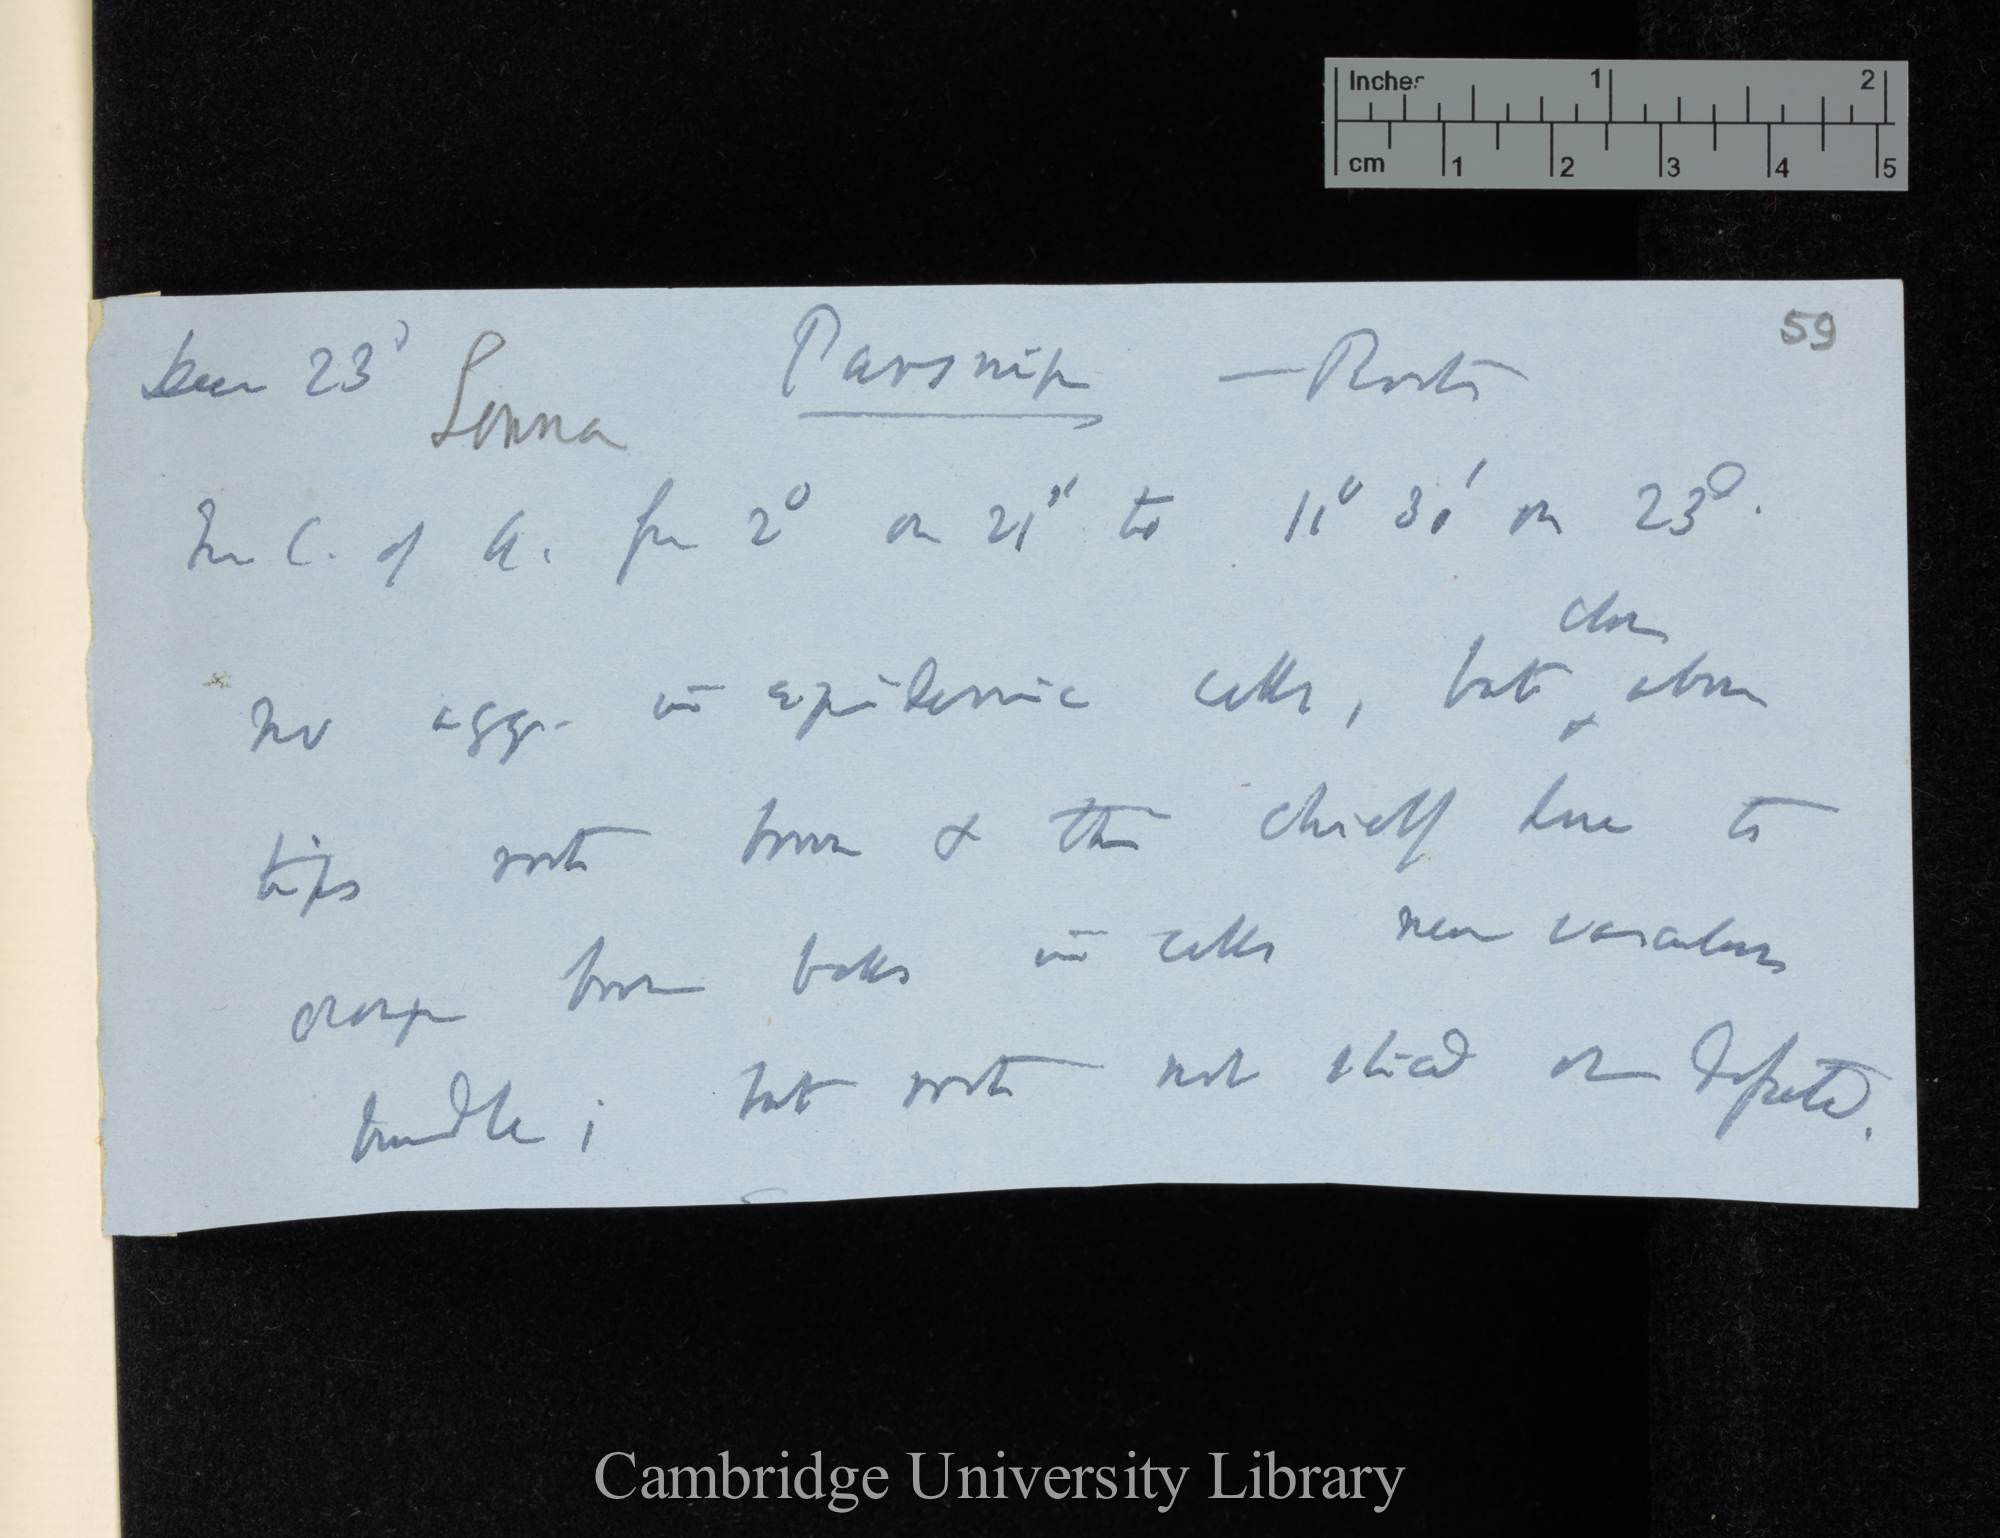 Inches 1 2
cm 1 2 3 4 5
59
Decr 23d Parsnip — Roots
Senna
In C. of A. from 2° on 21st to 11° 30' on 23d.
close
No aggr. in epidermic cells, but & above
tips roots brown & this chiefly due to
orange brown balls in cells near vascular
bundle; but roots not sliced or dissected.
Cambridge University Library